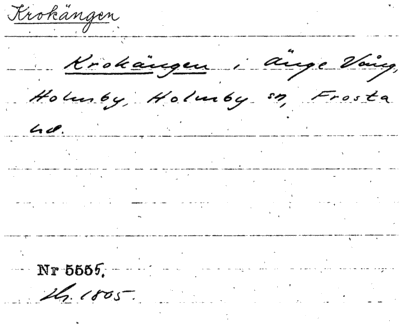 Krokängen
Krokängen i Änge Vång,
Holmby, Holmby sn, Frosta
hd.
Nr 5555.
1805.